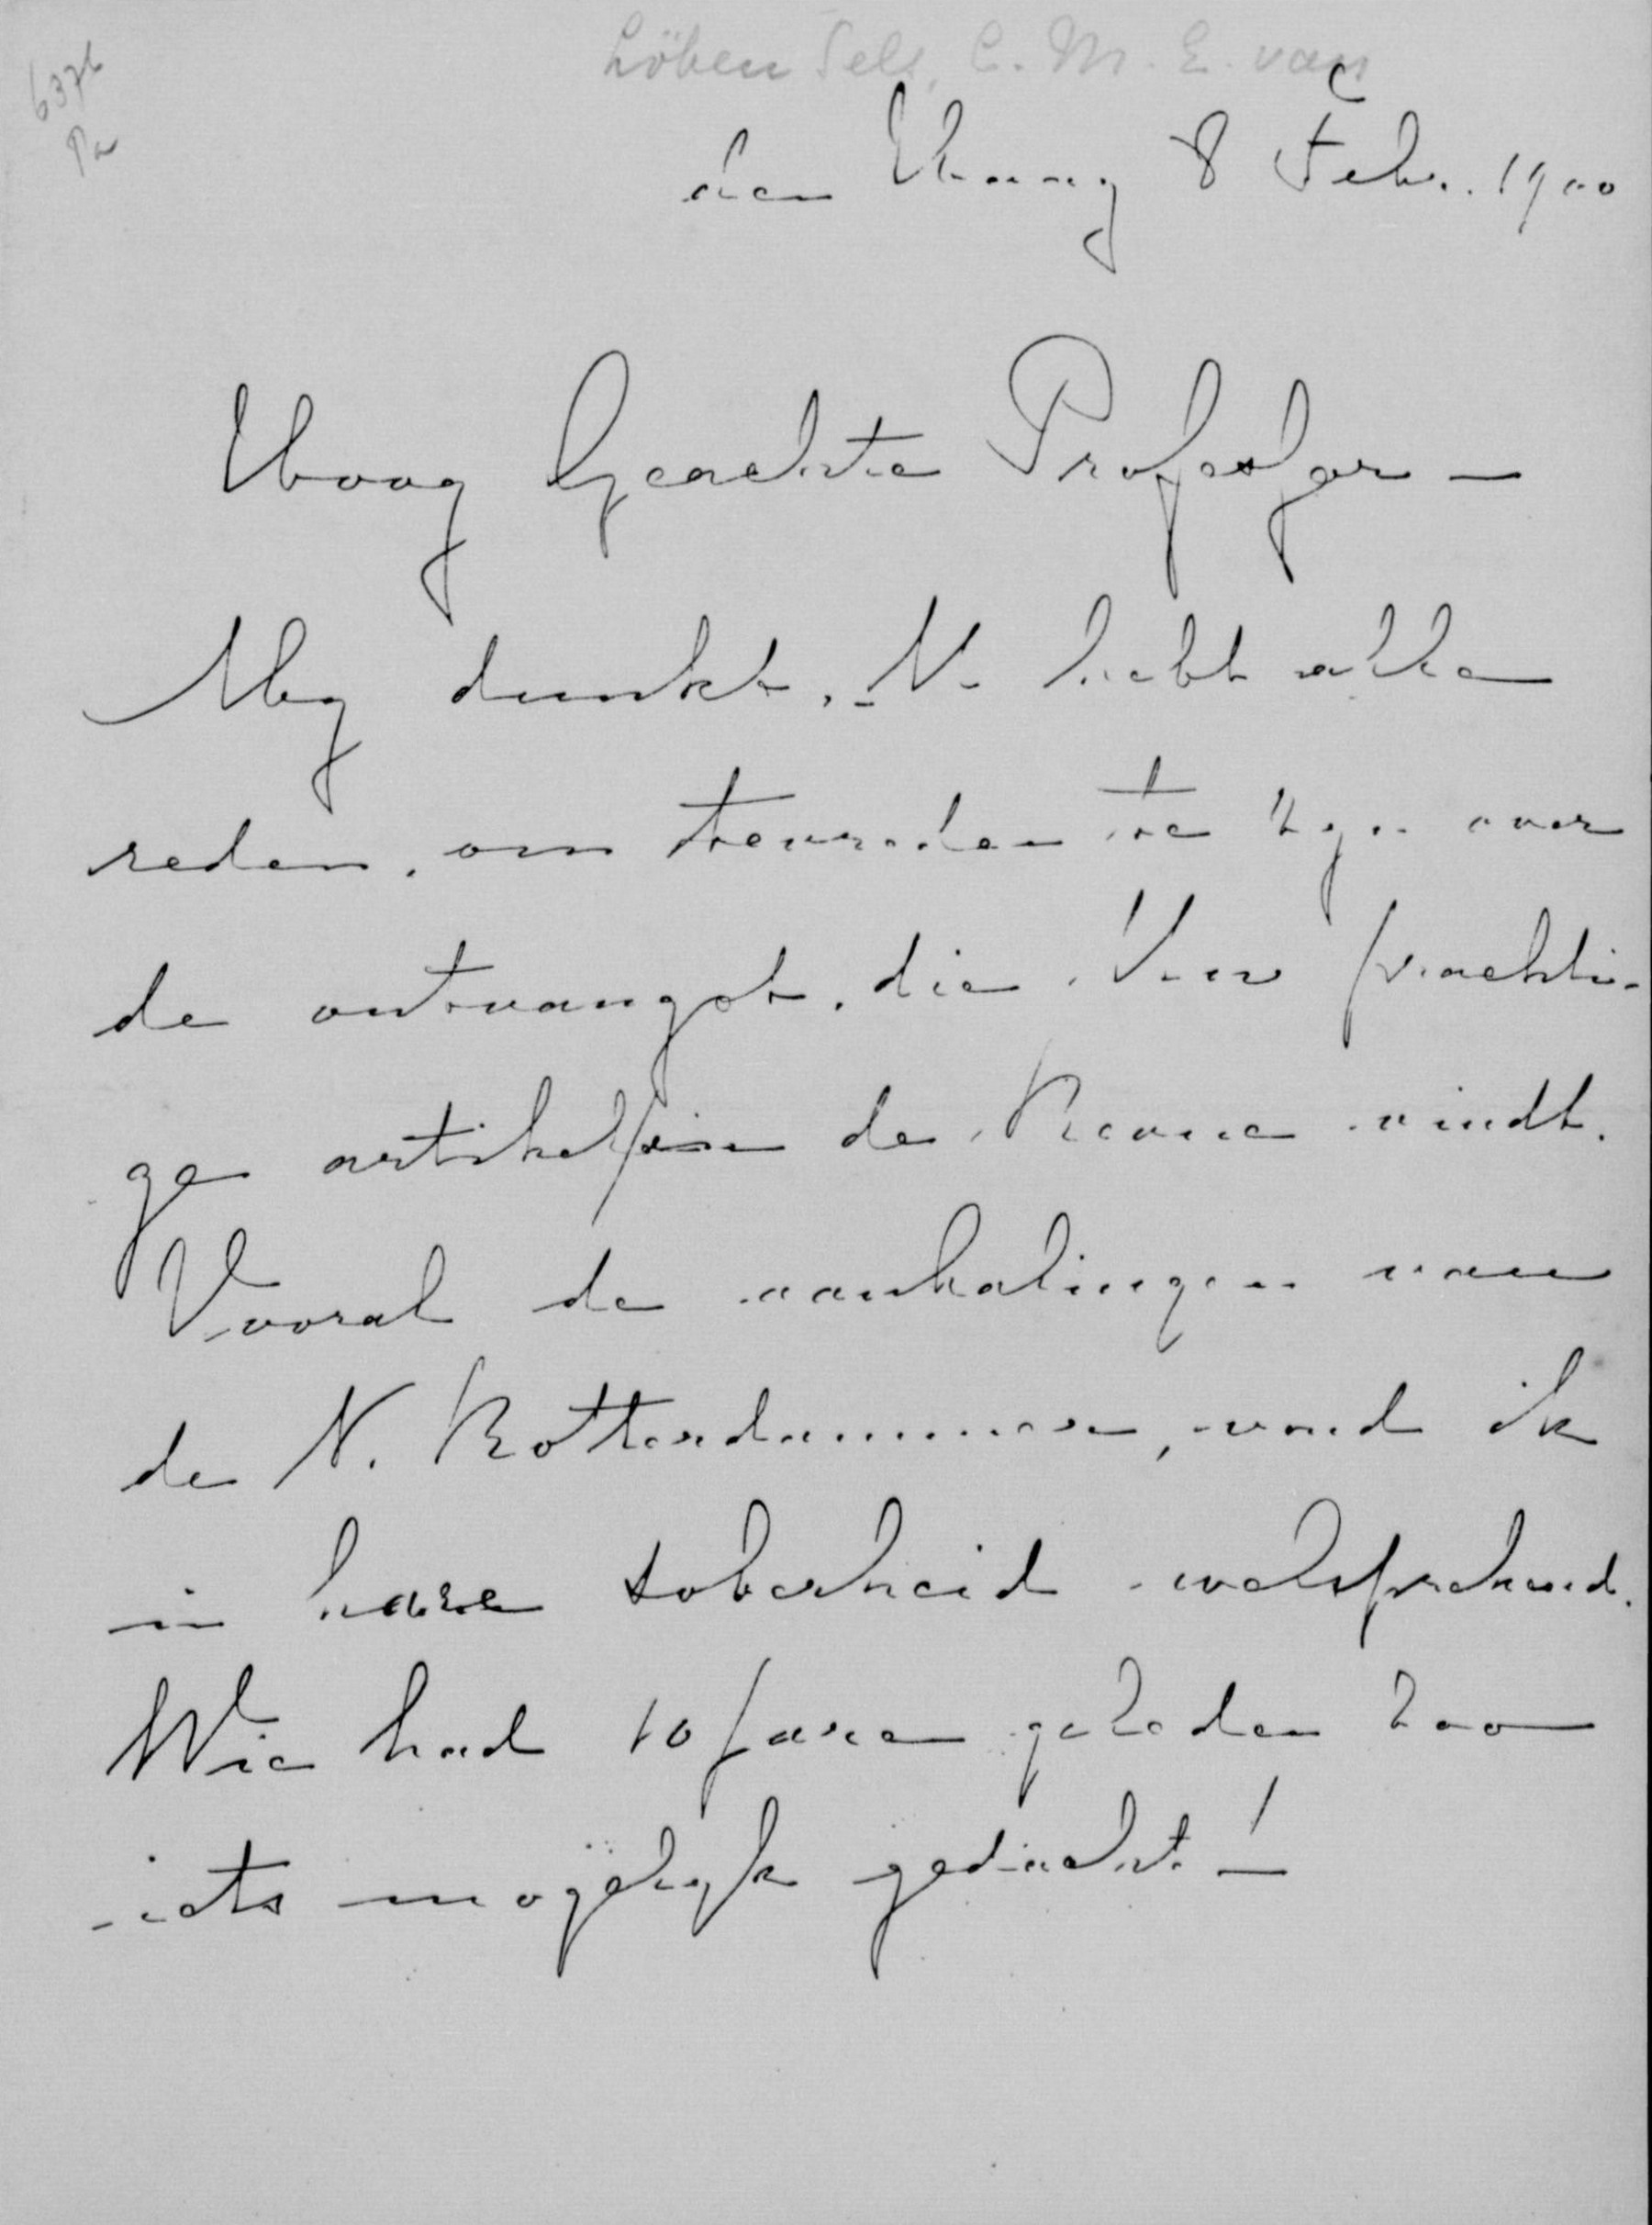 Löben Sels, C. M. E. van
6376
Pa
den Haag 8 Febr. 1900
Hoog Geachte Professor –
My dunkt, U hebt alle
reden, om tevreden te zyn over
de ontvangst, die Uw prachti-
ge artikel in de Revue vindt.
Vooral de aanhalingen van
de N. Rotterdammer, vond ik
in hare soberheid welsprekend.
Wie had 10 jaren geleden zoo
iets mogelyk gedacht!